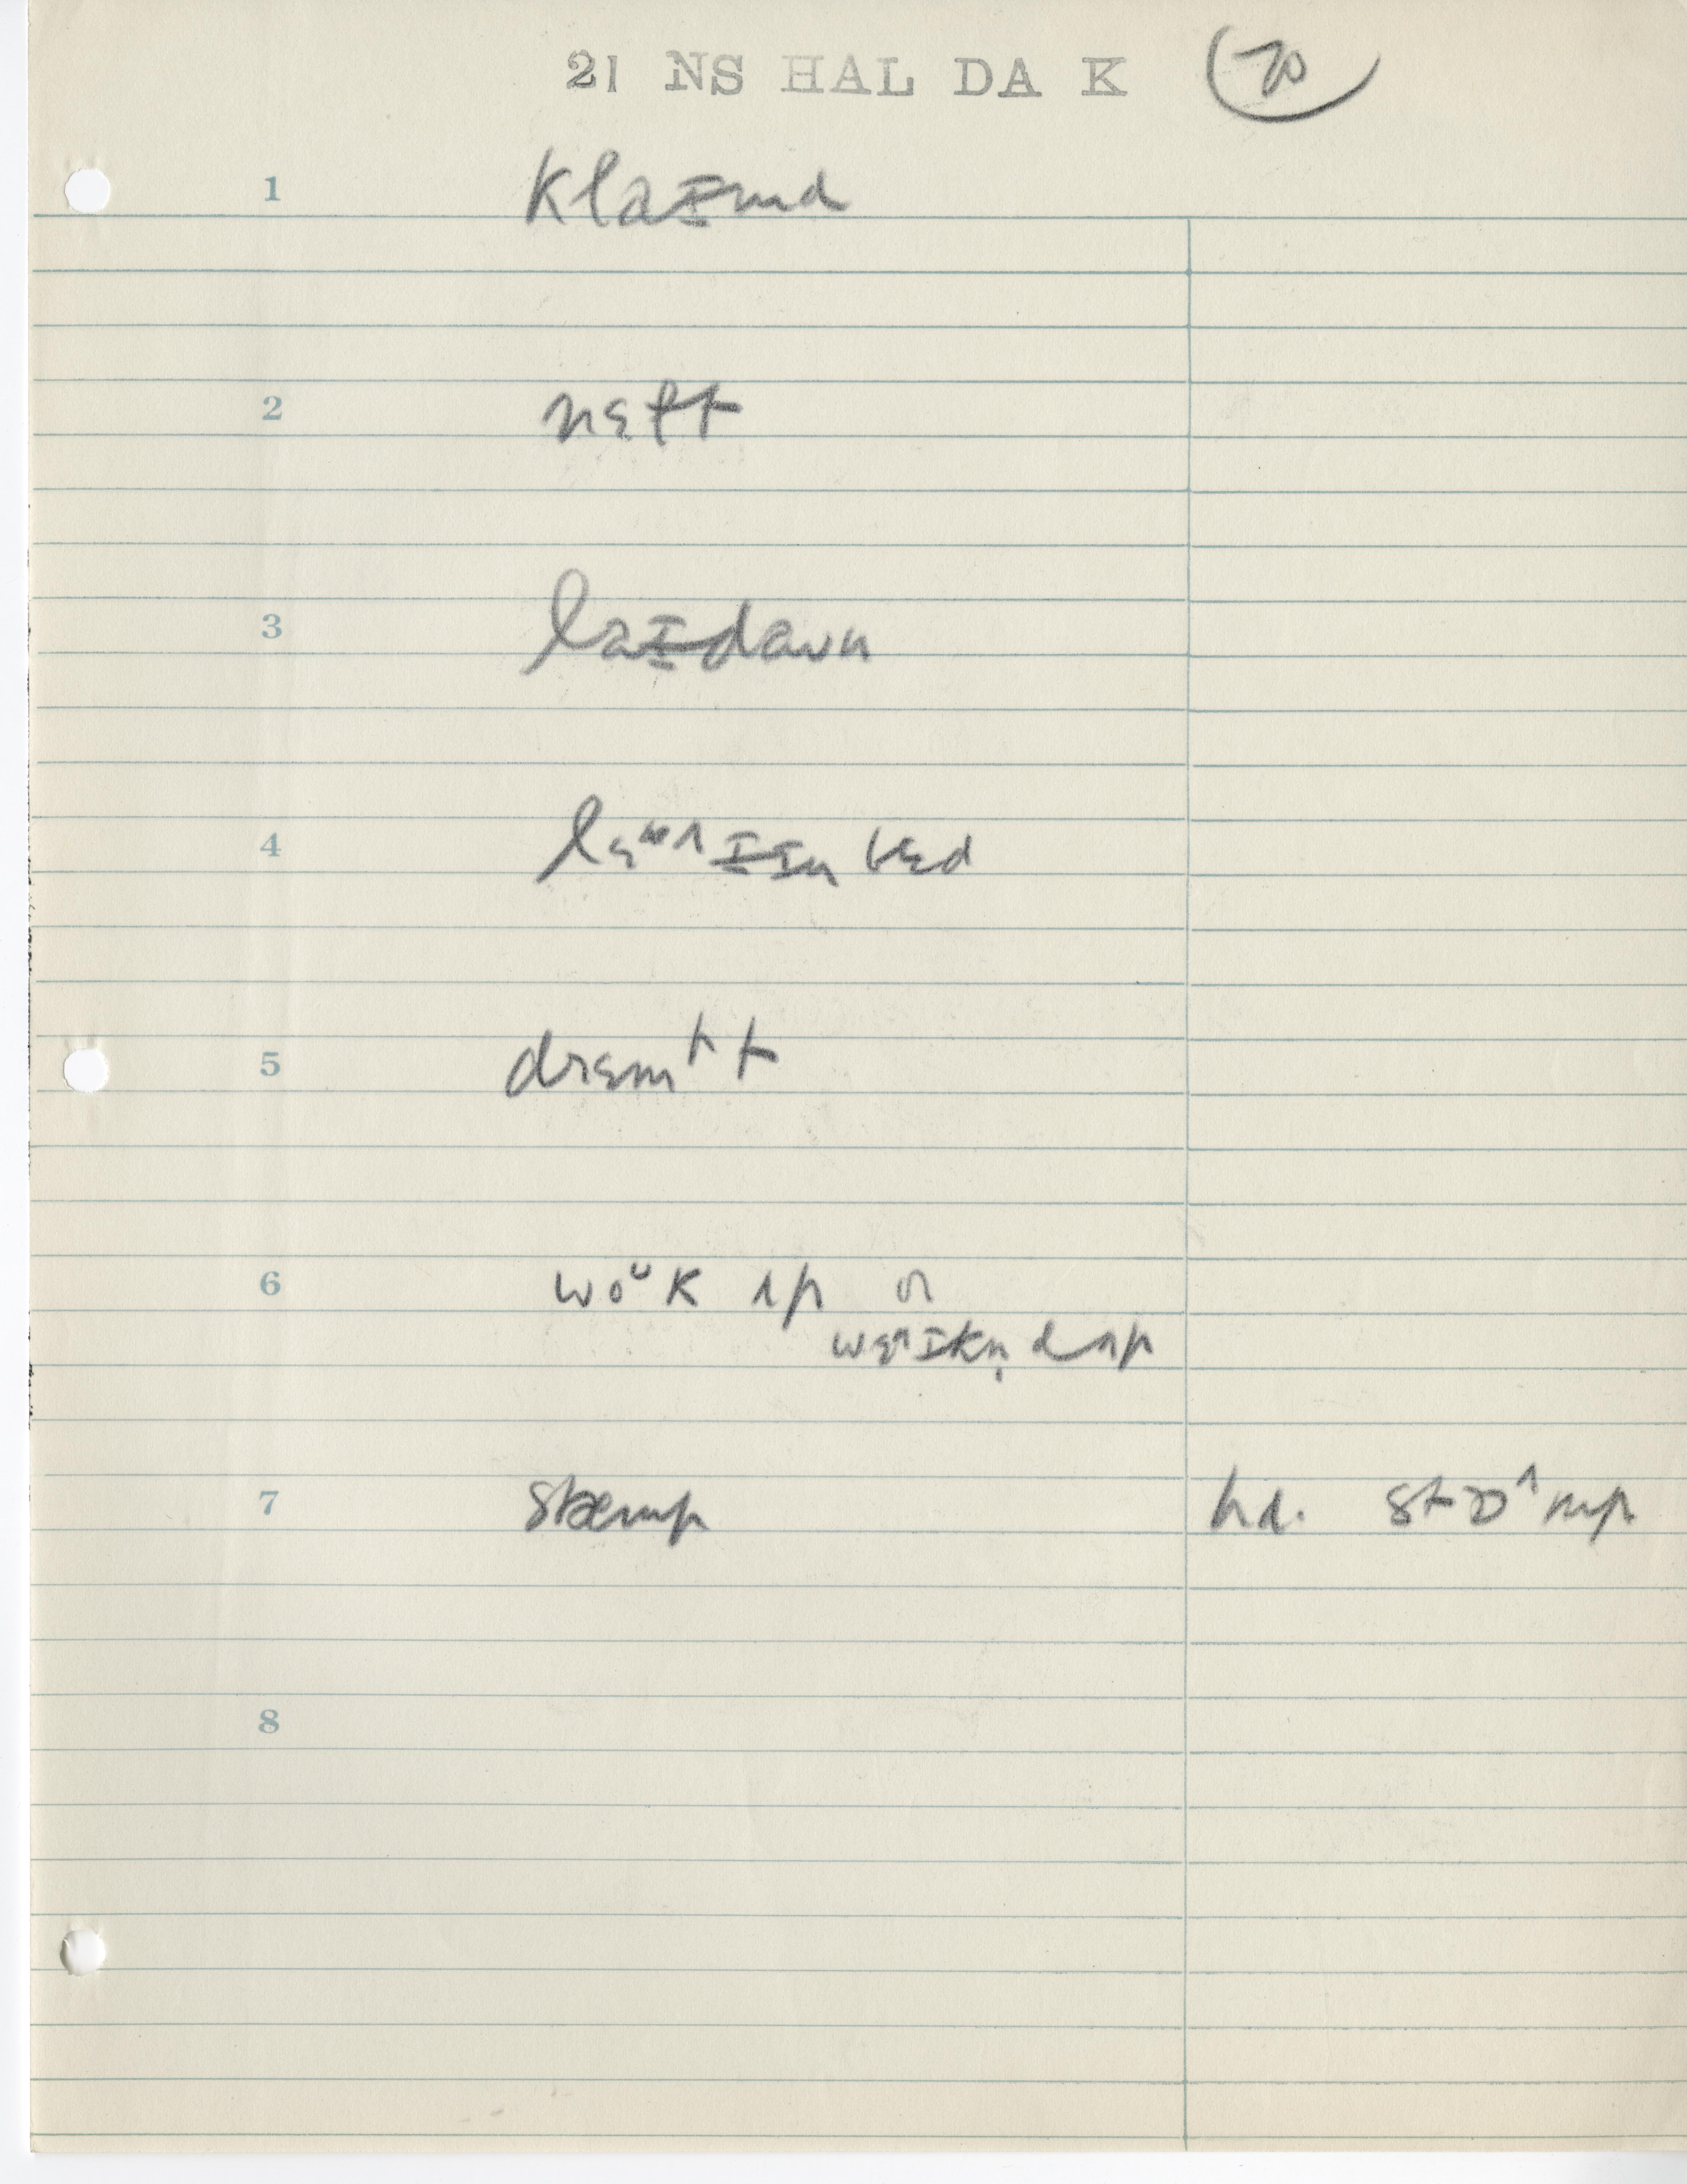 21 NS HAL DA K 70
1 klaɪmd
2 nɛlt
3 laɪdaun
4 bɛd
5 drɛmᵖt
6 woᵘk ʌp or
wɛᶺɪkn̩d ʌp
7 stæmp hd. stɒᶺmp
8